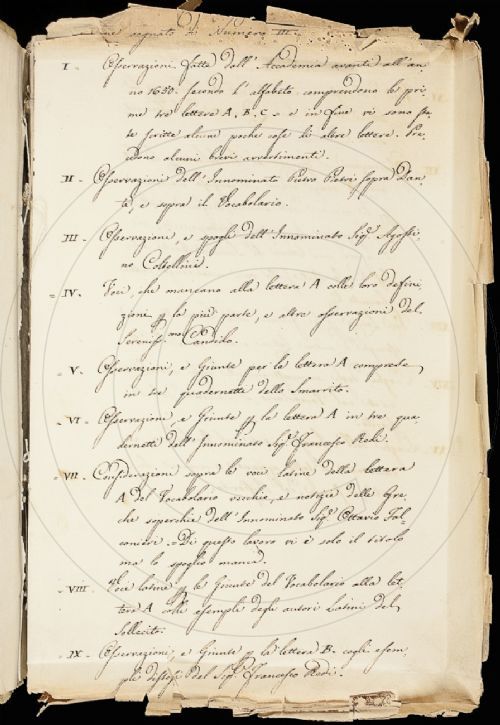 segnato A. Numero III.
I Osservazioni fatte dall'Accademia avanti all'an=
no 1650. secondo l'alfabeto comprendono le pri=
me tre lettere A, B, C = e in fine vi sono sta=
te scritte alcune poche cose di altre lettere. Pre=
cedono alcuni brevi avvertimenti.
II - Osservazioni dell'Innominato Pietro Pieri sopra Dan=
te, e sopra il Vocabolario.
III - Osservazioni, e spogli dell'Innominato Sigr. Agosti=
no Coltellini.
= IV. Voci, che mancano alla lettera A colle loro defini=
zioni p la più parte, e altre osservazioni del
Sereniss.mo Candido.
= V. Osservazioni, e Giunte per la lettera A comprese
in tre quadernette dello Smarrito.
- VI Osservazioni e Giunte p la lettera A in tre qua=
dernette dell'Innominato Sigr. Francesco Redi.
= VII. Considerazioni sopra le voci latine della lettera
A del Vocabolario vecchie, e notizie delle Gre=
che soperchie dell'Innominato Sigr. Ottavio Fal=
conieri. = Di questo lavoro vi è solo il titolo
ma lo spoglio manca.
- VIII Voci latine p le Giunte del Vocabolario alla let=
tera A colli esempli degli autori Latini del
Sollecito.
- IX - Osservazioni, e Giunte p la lettera B. cogli esem=
pli distesi del Sigr. Francesco Redi.